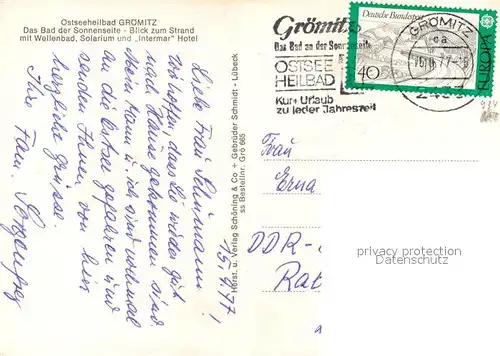 Ostseeheilbad GRÖMITZ
Das Bad der Sonnenseite - Blick zum Strand
mit Wellenbad, Solarium und „Intermar" Hotel
15.4.77!
Liebe Frau
Wir hoffen, dass Sie wieder gut
nach Hause gekommen sind.
Mein Mann u. ich sind nochmal
an die Ostsee gefahren und
senden Ihnen von hier
herzliche Grüsse.
Ihre Fam.
Herst. u. Verlag Schöning & Co + Gebrüder Schmidt - Lübeck
ss Bestellnr. Grö 665
Grömitz
Das Bad an der Sonnenseite
OSTSEE
HEILBAD
Kur+Urlaub
zu jeder Jahreszeit
Deutsche Bundespost
40
EUROPA
GRÖMITZ
ca
Frau
Erna
DDR-
privacy protection
Datenschutz